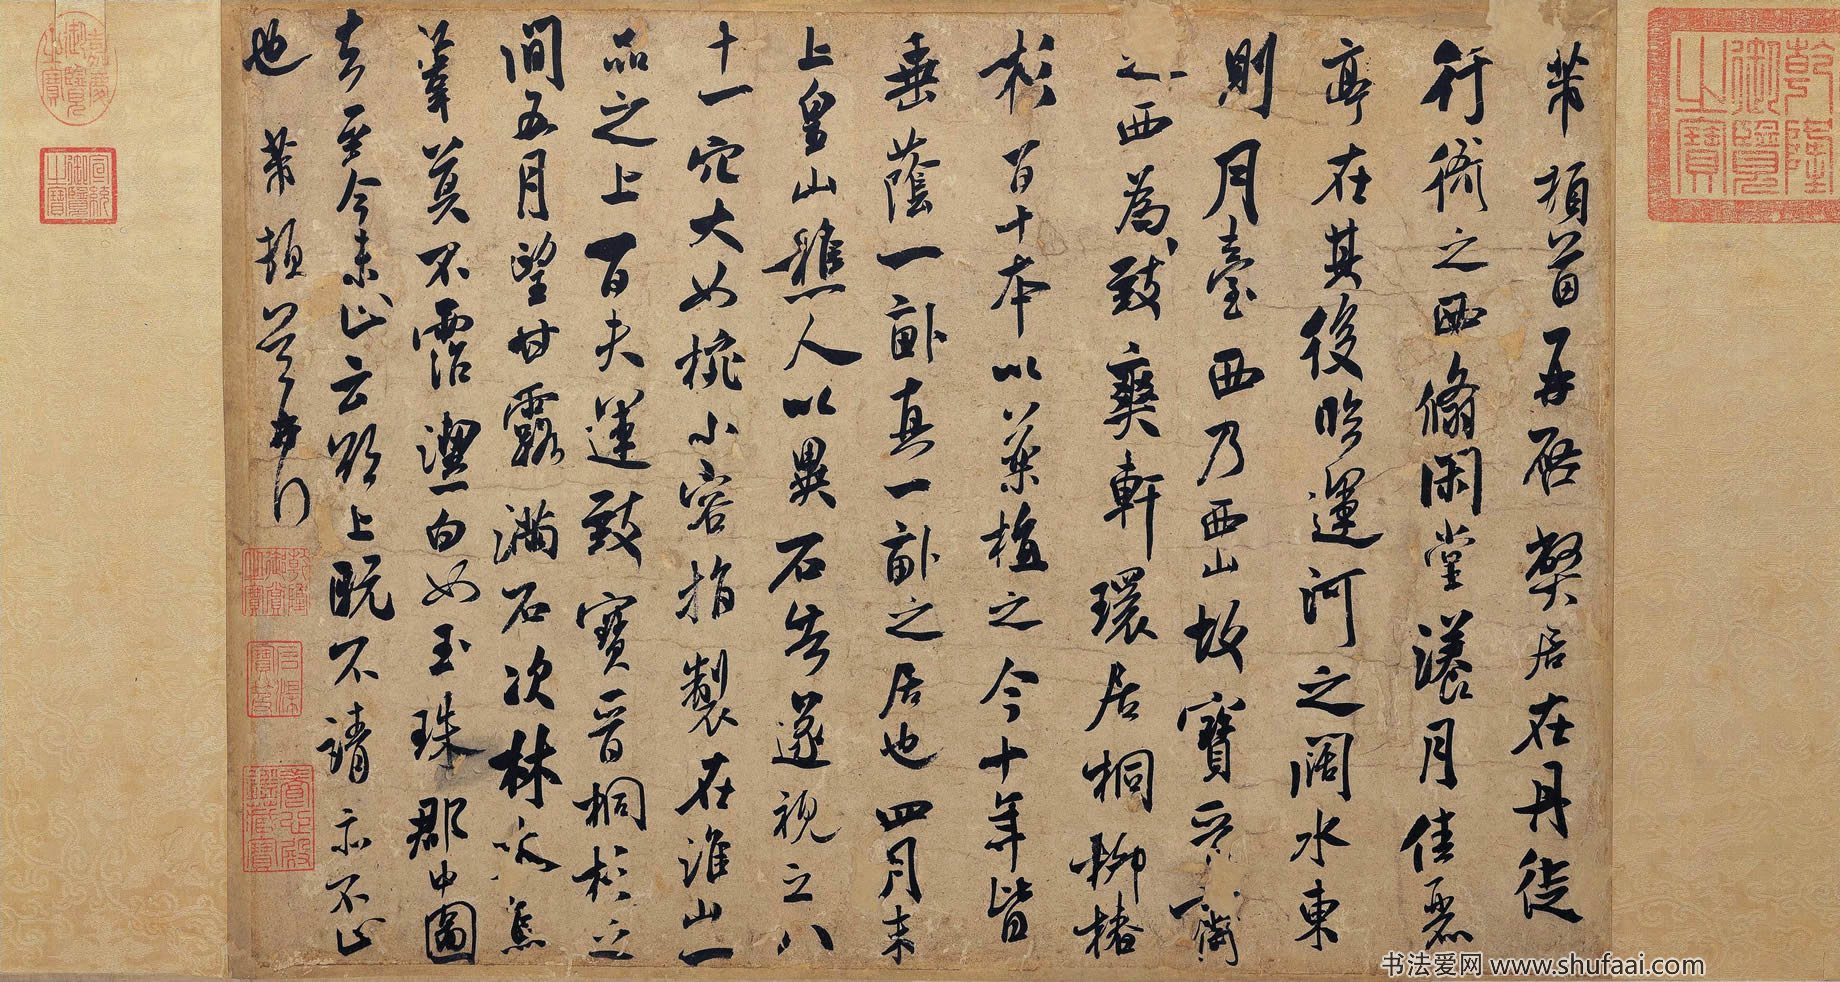 乾隆御覽之寶
芾頓首再啟弊居在丹徒
行衙之西翛閑堂漾月佳麗
亭在其後臨運河之闊水東
則月臺西乃西山故寶晉齋
之西為致爽軒環居桐柳椿
杉百十本以藥植之今十年皆
垂蔭一畝真一畝之居也四月末
上皇山樵人以異石告遂視之八
十一穴大如椀小容指製在淮山一
品之上百夫運致寶晉桐杉之
間五月望甘露滿石次林木焦
葦莫不霑潔白如玉珠郡中圖
去至今未止云欲上既不請亦不止
也 芾頓首再拜
石渠寶笈
養心殿鑑藏寶
嘉慶御覽之寶
宣統御覽之寶
书法爱网 www.shufaai.com